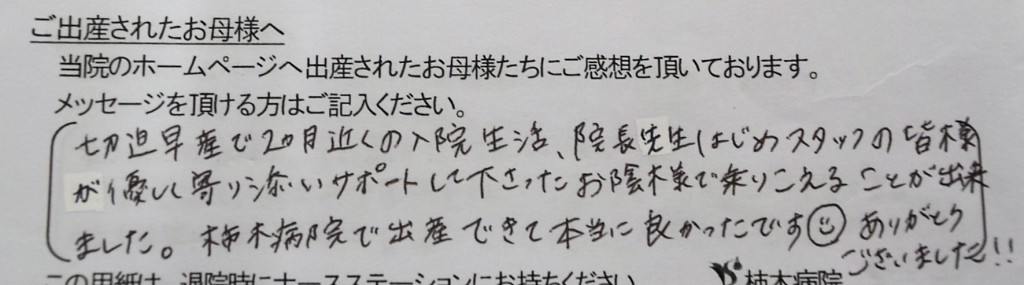 ご出産されたお母様へ
当院のホームページへ出産されたお母様たちにご感想を頂いております。
メッセージを頂ける方はご記入ください。
切迫早産で2ヵ月近くの入院生活、院長先生はじめスタッフの皆様
が優しく寄り添いサポートして下さったお陰様で乗りこえることが出来
ました。柿木病院で出産できて本当に良かったです☺ ありがとう
ございました!!
この用紙は、退院時にナースステーションにお持ちください
柿木病院